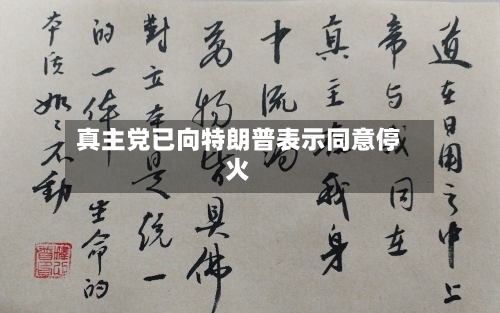 真主党已向特朗普表示同意停
火
道在日用之中上
帝与我同在
真主临我身
中流淌
万物皆具佛
对立本是统一
的一体 生命的
本质如如不动